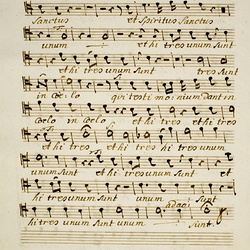 Sanctus et Spiritus Sanctus
unum et hi tres unum Sunt
et hi tres unum Sunt tres Sunt
in Coelo qui testimonium dant in
Coelo in coelo et hi tres et hi tres
et hi tres et hi tres
unum Sunt et hi tres unum Sunt
hi tres unum Sunt unum Sunt
adagio
hi tres unum Sunt unum Sunt